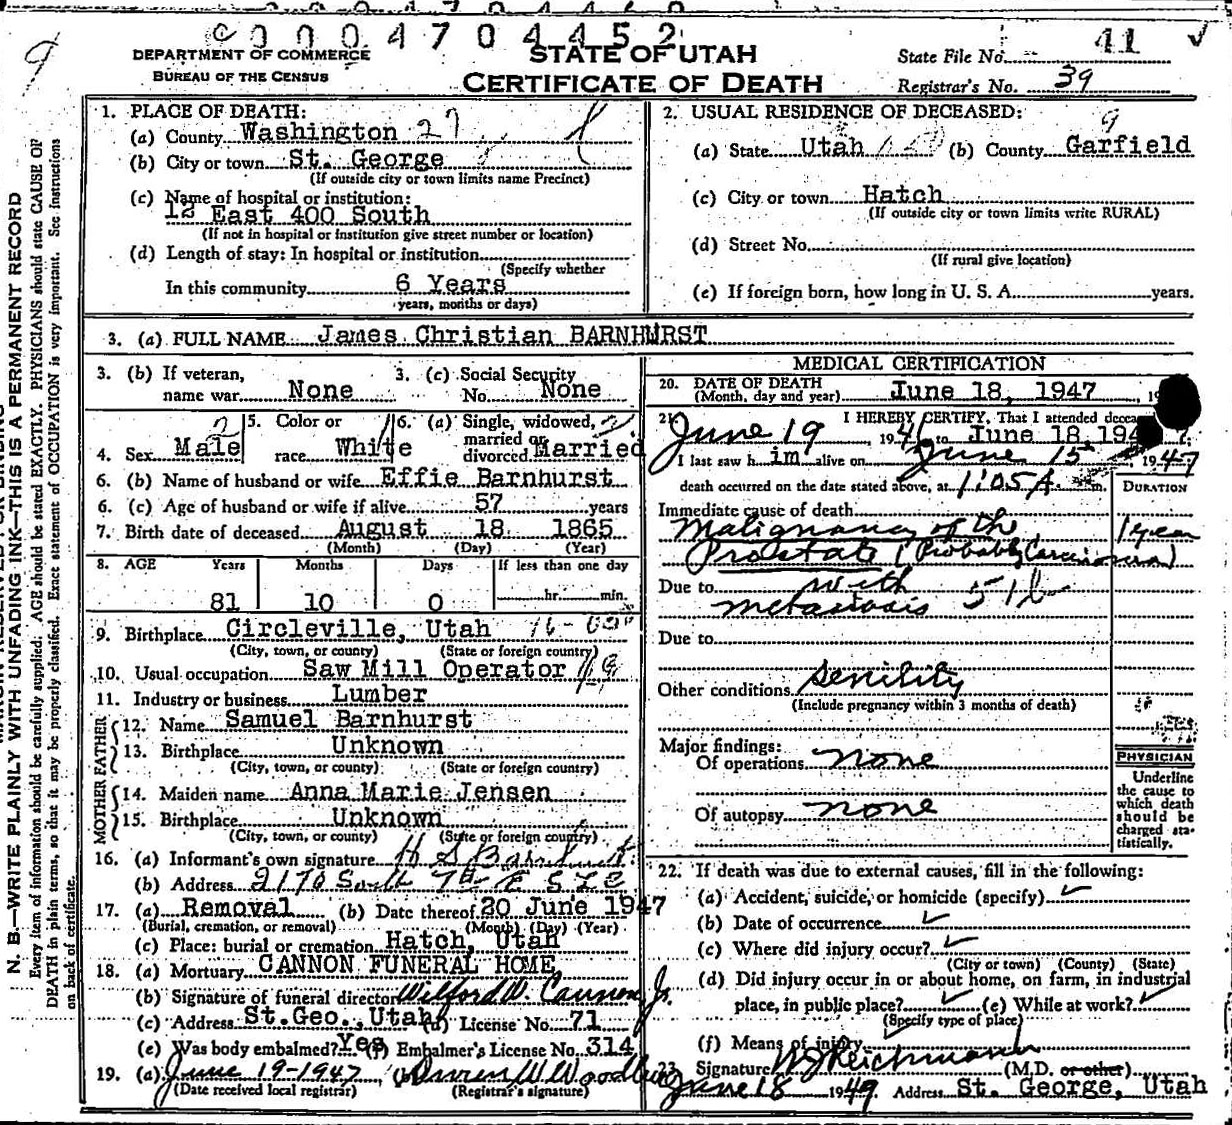 0000470 4452
DEPARTMENT OF COMMERCE
BUREAU OF THE CENSUS
STATE OF UTAH
CERTIFICATE OF DEATH
State File No. 41 ✓
Registrar's No. 39
9
N. B.—WRITE PLAINLY WITH UNFADING INK—THIS IS A PERMANENT RECORD
Every item of information should be carefully supplied. AGE should be stated EXACTLY. PHYSICIANS should state CAUSE OF
DEATH in plain terms, so that it may be properly classified. Exact statement of OCCUPATION is very important. See instructions
on back of certificate.
1. PLACE OF DEATH:
(a) County Washington 27
(b) City or town St. George
(If outside city or town limits name Precinct)
(c) Name of hospital or institution:
12 East 400 South
(If not in hospital or institution give street number or location)
(d) Length of stay: In hospital or institution
(Specify whether
In this community 6 Years
years, months or days)
2. USUAL RESIDENCE OF DECEASED:
9
(a) State Utah (b) County Garfield
(c) City or town Hatch
(If outside city or town limits write RURAL)
(d) Street No.
(If rural give location)
(e) If foreign born, how long in U. S. A. years.
3. (a) FULL NAME James Christian BARNHURST
3. (b) If veteran,
name war None
3. (c) Social Security
No. None
4. Sex Male
5. Color or
race White
6. (a) Single, widowed,
married or
divorced Married
6. (b) Name of husband or wife Effie Barnhurst
6. (c) Age of husband or wife if alive 57 years
7. Birth date of deceased August 18 1865
(Month) (Day) (Year)
8. AGE Years Months Days If less than one day
81 10 0 hr. min.
9. Birthplace Circleville, Utah
(City, town, or county) (State or foreign country)
10. Usual occupation Saw Mill Operator
11. Industry or business Lumber
FATHER
12. Name Samuel Barnhurst
13. Birthplace Unknown
(City, town, or county) (State or foreign country)
MOTHER
14. Maiden name Anna Marie Jensen
15. Birthplace Unknown
(City, town, or county) (State or foreign country)
16. (a) Informant's own signature H S Barnhurst
(b) Address 2170 South 7th E SLC
17. (a) Removal (b) Date thereof 20 June 1947
(Burial, cremation, or removal) (Month) (Day) (Year)
(c) Place: burial or cremation Hatch, Utah
18. (a) Mortuary CANNON FUNERAL HOME
(b) Signature of funeral director Wilford W. Cannon Jr.
(c) Address St.Geo., Utah (d) License No. 71
(e) Was body embalmed? Yes (f) Embalmer's License No. 314
19. (a) June 19-1947, (b)
(Date received local registrar) (Registrar's signature)
MEDICAL CERTIFICATION
20. DATE OF DEATH
(Month, day and year) June 18, 1947
21. I HEREBY CERTIFY, That I attended deceased
June 19 1946 to June 18, 194 7
I last saw h im alive on June 15 1947
death occurred on the date stated above, at 1:05 A. m.
DURATION
Immediate cause of death
Malignancy of the 1 year
Prostate (Probably Carcinoma)
Due to with
metastasis 51b
Due to
Other conditions Senility
(Include pregnancy within 3 months of death)
Major findings:
Of operations none
Of autopsy none
PHYSICIAN
Underline
the cause to
which death
should be
charged sta-
tistically.
22. If death was due to external causes, fill in the following:
(a) Accident, suicide, or homicide (specify) ✓
(b) Date of occurrence ✓
(c) Where did injury occur? ✓
(City or town) (County) (State)
(d) Did injury occur in or about home, on farm, in industrial
place, in public place? ✓ (e) While at work? ✓
(Specify type of place)
(f) Means of injury
23. Signature W J Reichmann (M.D. or other)
June 18 1947 Address St. George, Utah